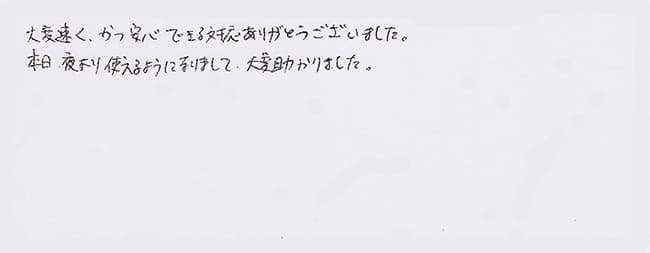 大変速く、かつ安心できる対応ありがとうございました。
本日、夜より使えるようになりまして、大変助かりました。